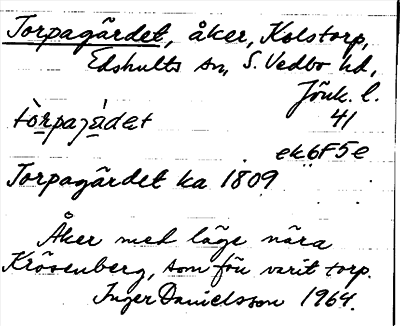 Torpagärdet, åker, Kolstorp,
Edshults sn, S. Vedbo hd,
Jönk. l.
tòrpajádet 41
ek6F5e
Torpagärdet ka 1809
Åker med läge nära
Krösenberg, som förr varit torp.
Inger Danielsson 1964.